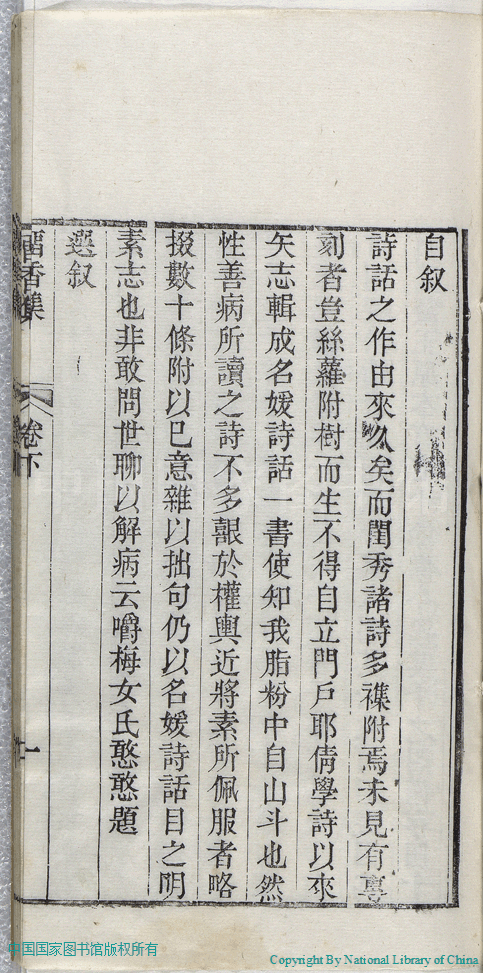 自叙
詩話之作由來久矣而閨秀諸詩多襍附焉未見有專
刻者豈絲蘿附樹而生不得自立門戶耶倩學詩以來
矢志輯成名媛詩話一書使知我脂粉中自山斗也然
性善病所讀之詩不多艱於權輿近將素所佩服者略
掇數十條附以己意雜以拙句仍以名媛詩話目之明
素志也非敢問世聊以解病云嚼梅女氏憨憨題
選叙
留香集
卷下
一
中国国家图书馆版权所有
Copyright By National Library of China